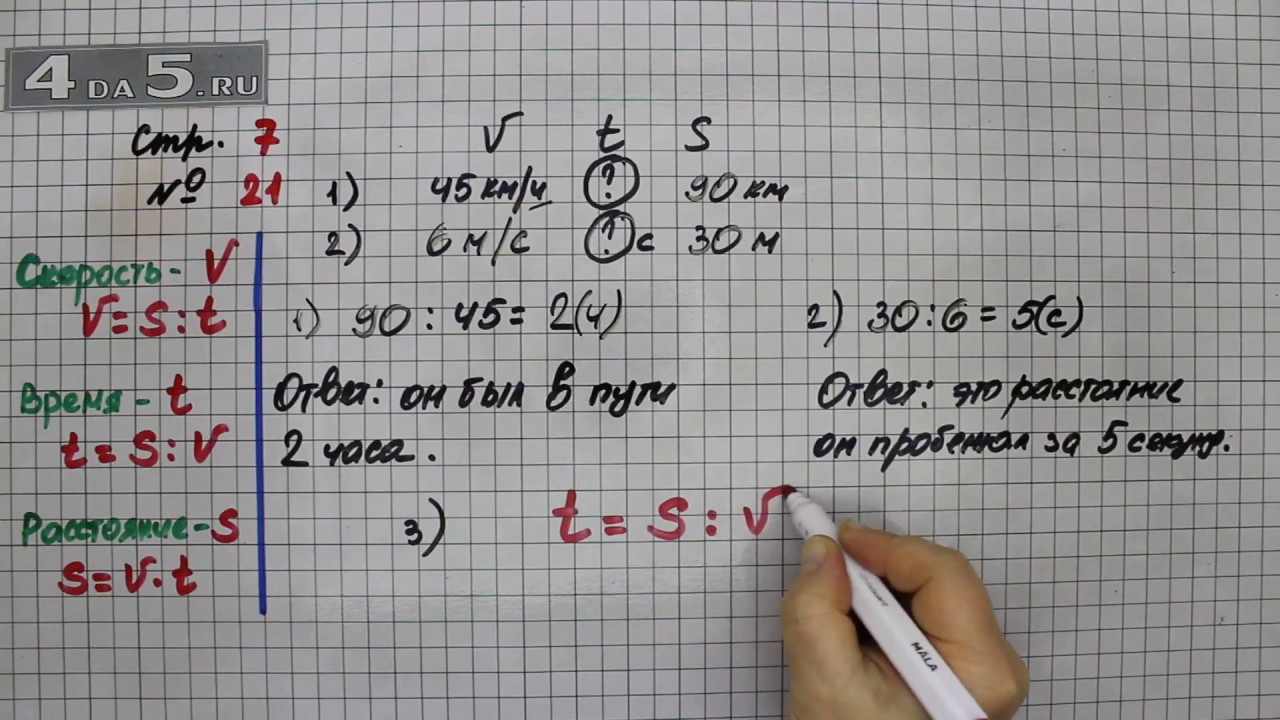 4DA5.RU
Стр. 7
№ 21
V t S
1) 45 км/ч ? 90 км
2) 6 м/с ? с 30 м
Скорость - V
V = S : t
Время - t
t = S : V
Расстояние - S
S = V · t
1) 90 : 45 = 2(ч)
Ответ: он был в пути
2 часа.
2) 30 : 6 = 5(с)
Ответ: это расстояние
он пробежал за 5 секунд.
3) t = S : V
MALA